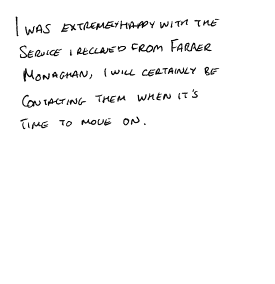 I WAS EXTREMELY HAPPY WITH THE
SERVICE I RECEIVED FROM FARRER
MONAGHAN, I WILL CERTAINLY BE
CONTACTING THEM WHEN IT'S
TIME TO MOVE ON.